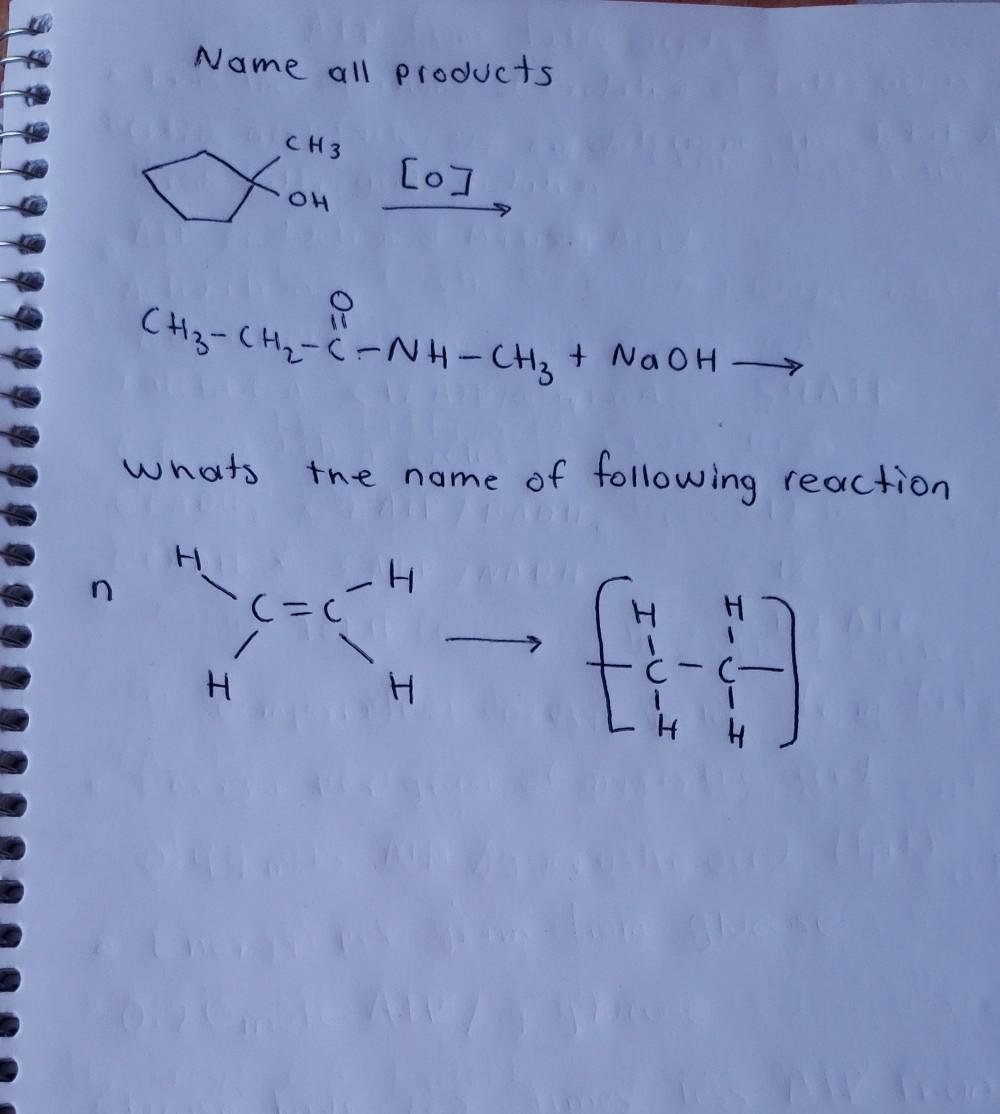 Name all products
CH3
OH
[O]
O
CH3-CH2-C-NH-CH3 + NaOH →
Whats the name of following reaction
n
H H
C=C
H H
→
H H
-C-C-
H H